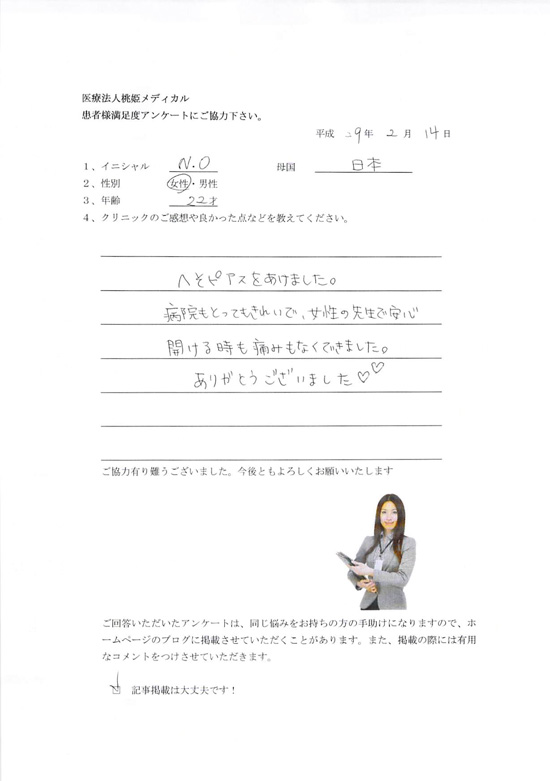 医療法人桃姫メディカル
患者様満足度アンケートにご協力下さい。
平成 29年 2月 14日
1、イニシャル N.O 母国 日本
2、性別 女性・男性
3、年齢 22才
4、クリニックのご感想や良かった点などを教えてください。
へそピアスをあけました。
病院もとってもきれいで、女性の先生で安心
開ける時も痛みもなくできました。
ありがとうございました♡♡
ご協力有り難うございました。今後ともよろしくお願いいたします
ご回答いただいたアンケートは、同じ悩みをお持ちの方の手助けになりますので、ホ
ームページのブログに掲載させていただくことがあります。また、掲載の際には有用
なコメントをつけさせていただきます。
記事掲載は大丈夫です！